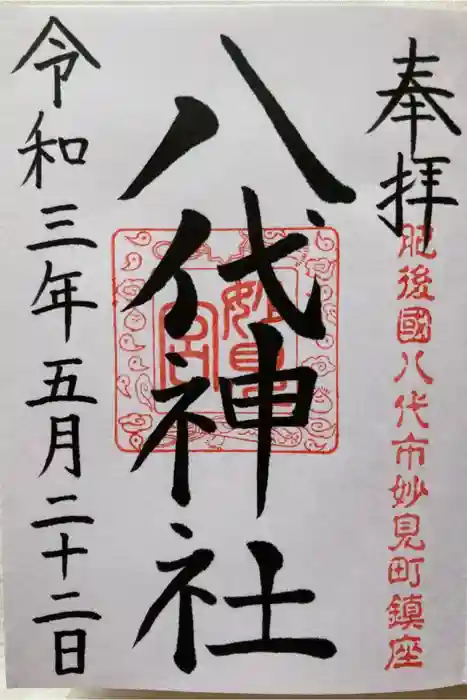 奉拝
肥後國八代市妙見町鎮座
八代神社
妙見宮
令和三年五月二十二日